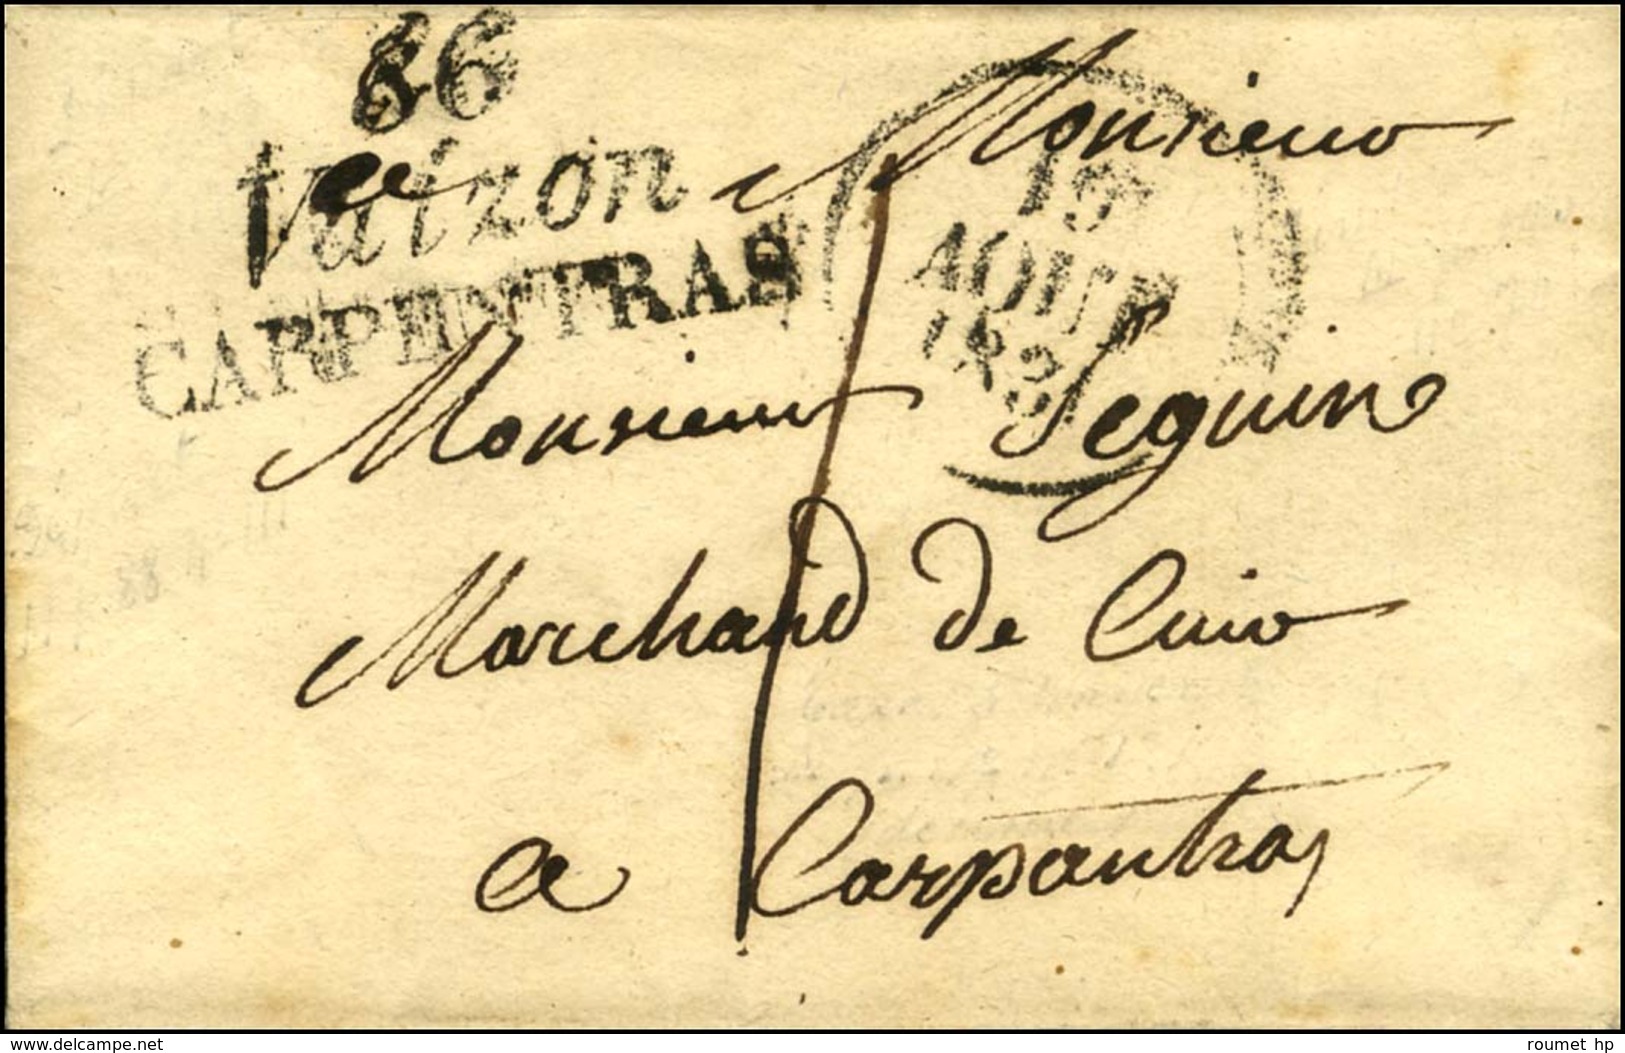 86
Vaizon
CARPENTRAS
19
AOUT
182
a Monsieur
Monsieur Seguin
Marchand de Cuir
a Carpantras
delcampe.net
roumet hp